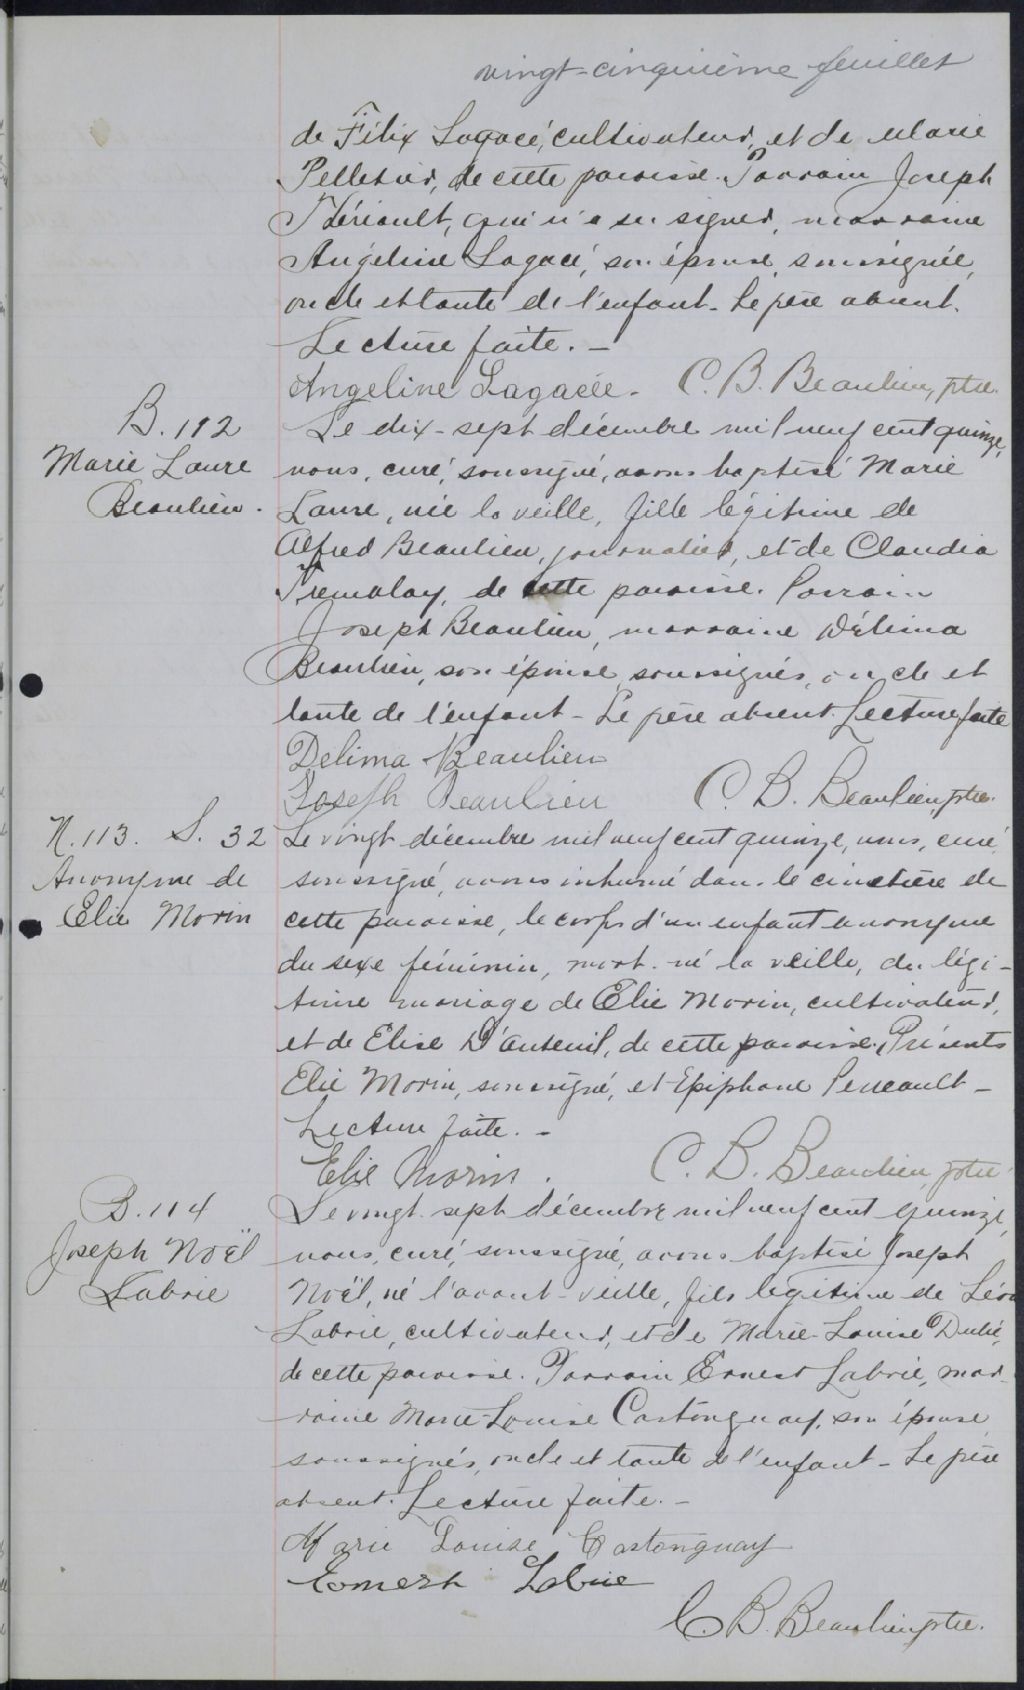 vingt-cinquième feuillet
de Félix Lagacé, cultivateur, et de Marie
Pelletier, de cette paroisse. Parrain Joseph
Thériault, qui n'a su signer, marraine
Angéline Lagacé, son épouse, soussignée,
oncle et tante de l'enfant. Le père absent.
Lecture faite. -
Angeline Lagacée. C. B. Beaulieu, ptre.
B. 112
Marie Laure
Beaulieu.
Le dix-sept décembre mil neuf cent quinze,
nous, curé, soussigné, avons baptisé Marie
Laure, née la veille, fille légitime de
Alfred Beaulieu, journalier, et de Claudia
Tremblay, de cette paroisse. Parrain
Joseph Beaulieu, marraine Délima
Beaulieu, son épouse, soussignés, oncle et
tante de l'enfant - Le père absent. Lecture faite
Delima Beaulieu
Joseph Beaulieu C. B. Beaulieu, ptre.
N. 113. S. 32
Anonyme de
Elie Morin
Le vingt décembre mil neuf cent quinze, nous, curé,
soussigné, avons inhumé dans le cimetière de
cette paroisse, le corps d'un enfant anonyme
du sexe féminin, mort-né la veille, du légi-
time mariage de Elie Morin, cultivateur,
et de Elise D'Auteuil, de cette paroisse. Présents
Elie Morin, soussigné, et Epiphane Peneault -
Lecture faite. -
Elie Morin. C. B. Beaulieu, ptre
B. 114
Joseph Noël
Labrie
Le vingt-sept décembre mil neuf cent quinze,
nous, curé, soussigné, avons baptisé Joseph
Noël, né l'avant-veille, fils légitime de Léon
Labrie, cultivateur, et de Marie-Louise Dubé,
de cette paroisse. Parrain Ernest Labrie, mar-
raine Marie-Louise Castonguay, son épouse,
soussignés, oncle et tante de l'enfant - Le père
absent. Lecture faite. -
Marie Louise Castonguay
Ernest Labrie
C. B. Beaulieu, ptre.